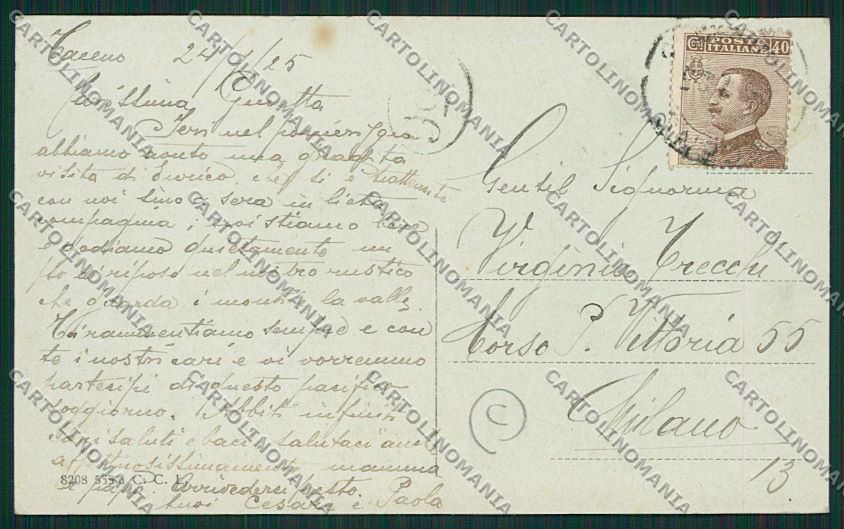 Taceno 24/7/25
Carissima Giulietta
Ieri nel pomeriggio
abbiamo avuto una gradita
visita di Enrico che si è trattenuto
con noi sino a sera in lieta
compagnia; noi stiamo bene
e godiamo quietamente un
po' di riposo nel nostro rustico
che guarda i monti e la valle.
Ti rammentiamo sempre e con
te i nostri cari e vi vorremmo
partecipi di questo pacifico
soggiorno. Abbiti infiniti
cari saluti e baci e salutaci anche
affettuosissimamente mamma
e papà. Arrivederci presto.
tuoi Cesare e Paola
8208 555 C. C. L.
POSTE
ITALIANE
Cmi 40
Gentil Signorina
Virginia Trecchi
Corso P. Vittoria 55
Milano
13
C
CARTOLINOMANIA